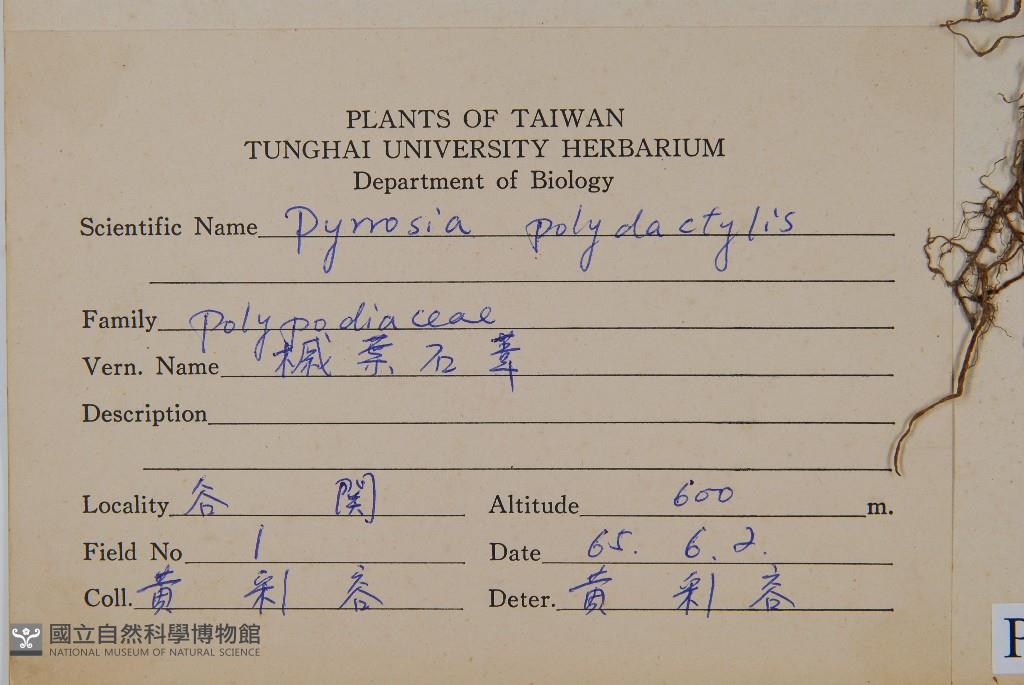 PLANTS OF TAIWAN
TUNGHAI UNIVERSITY HERBARIUM
Department of Biology
Scientific Name Pyrrosia polydactylis
Family polypodiaceae
Vern. Name 槭葉石葦
Description
Locality 谷関 Altitude 600 m.
Field No 1 Date 65. 6. 2.
Coll. 黃 Deter. 黃
國立自然科學博物館
NATIONAL MUSEUM OF NATURAL SCIENCE
P